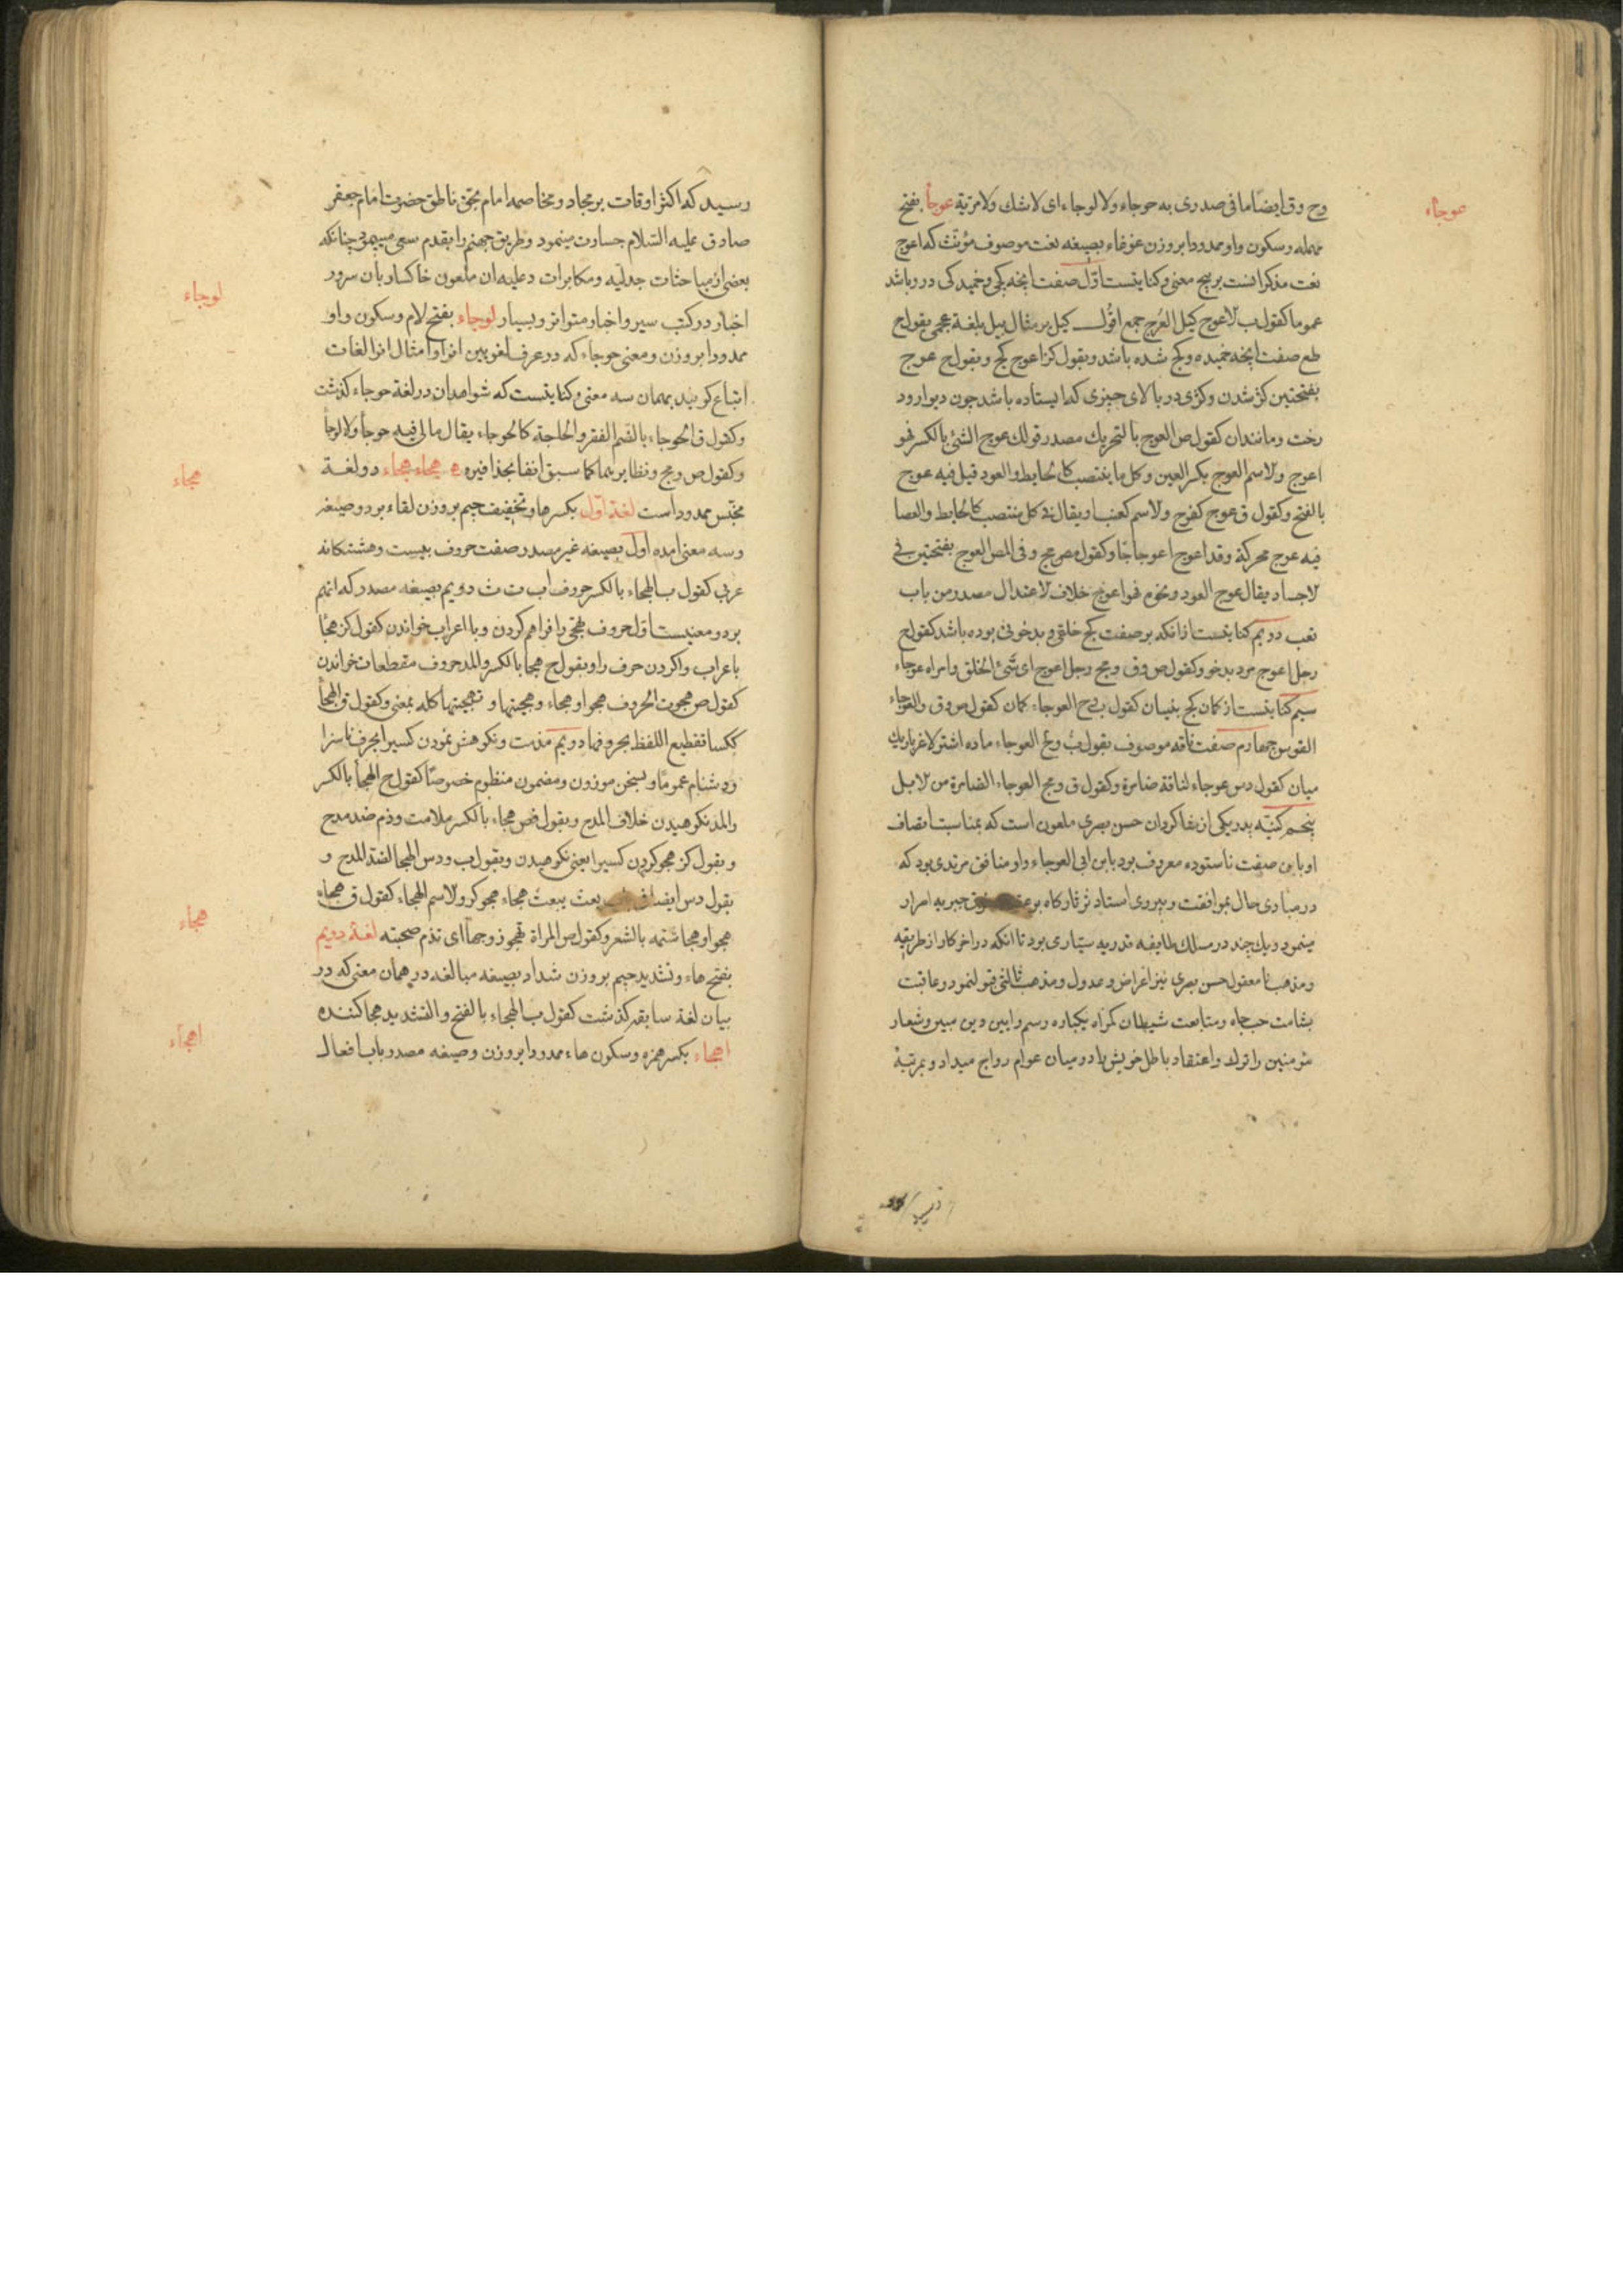 عوجاء
وح وق ایضًا ما فی صدری به حوجاء ولا لوجاء ای لا شك ولا مریة عوجأ بفتح
مهمله وسکون واو ممدودا بروزن غوغاء بصیغه نعت موصوف مؤنث که اعوج
نعت مذکر انست بر پنج معنی وکنایتست اوّل صفت انچه کجی وخمیدکی درو باشد
عموما کقول ب لاعوج کیل العُرج جمع اقول کیل بر مثال میل بلغة عجمی بقول ح
طع صفت انچه خمیده وکج شده باشد وبقول کنز اعوج کج وبقول ح عوج
بفتحتین کژ شدن وکژی در بالای چیزی که ایستاده باشد چون دیوار ود
رخت ومانندان کقول ص العوج بالتحریك مصدر قولك عوج الشئ بالکسر فهو
اعوج ولاسم العوج بکسر العین وکل ما ینتصب کالحایط والعود قیل فیه عوج
بالفتح وکقول ق عوج کفرح ولاسم کعنب او یقال فی کل منتصب کالحایط والعصا
فیه عوج محرکة وقد اعوج اعوجاجًا وکقول مص مج وفی المص العوج بفتحتین فی
لاجساد یقال عوج العود ونحوه فهو اعوج خلاف لاعتدال مصدر من باب
تعب دویم کنایتست ازانکه بر صفت کج خلقی وبدخوئی بوده باشد کقول ح
رجل اعوج مرد بدخو وکقول ص وق ومج رجل اعوج ای سَّئ الخلق وامراه عوجاء
سیم کنایتست از کمان کج بنیان کقول ب وح العوجاء کمان کقول ص وق والعوجاء
القوس چهارم صفت ناقه موصوف بقول ب ومج العوجاء ماده اشتر لاغر باریك
میان کقول دس عوجاء لناقة ضامرة وکقول ق ومج العوجاء الضامرة من لابل
پنجم کنیّه پدر یکی از شاکردان حسن بصری ملعون است که بمناسبت مضاف
او باین صفت ناستوده معروف بود بابن ابی العوجاء واو منافق مرتدی بود که
در مبادی حال بموافقت وپیروی استاد جبریه امرار
مینمود ویك چند در مسلك طایفه قدریه سیّاری بود تا انکه در اخر کار از طریقه
ومذهب نا معقول حسن بصری نیز اعراض وعدول ومذهب ثالثی قبو لنمود وعاقبت
بشامت حب جاه ومتابعت شیطان کمراه یکباره رسم وایین ودین مبین وشعار
مؤمنین را ترك واعتقاد باطل خویش را در میان عوام رواج میداد وبمرتبهٔ
رسید که اکثر اوقات بر مجاد ومخاصمه امام بحق ناطق حضرت امام جعفر
صادق علیه السّلام جسارت مینمود وطریق جهنم را بقدم سعی میپیمود چنانکه
بعضی از مباحثات جدلیّه ومکابرات دعلیه ان ملعون خاکسار بان سرور
لوجاء
اخیار در کتب سیر واخبار متواتر وبسیار لوجاء بفتح لام وسکون واو
ممدودا بروزن ومعنی حوجاء که در عرف لغویین انرا وامثال انرا لغات
اتباع کویند بهمان سه معنی وکنایتست که شواهدان در لغة حوجاء کذشت
وکقول ق الحوجاء بالضم الفقر والحاجة کالحوجاء یقال مالی فیه حوجأ ولا لوجأ
هجاء
وکقول ص ومج ونظایر بهما کما سبق انفا بحذافیره ه هجاء هجاء دو لغة
مختص ممدود است لغة اوّل بکسر ها وتخفیف جیم بروزن لقاء بر دو صیغه
وسه معنی امده اول بصیغه غیر مصدر صفت حروف بیست وهشتکانه
عربی کقول ب الهجاء بالکسر حروف اب ت ث دویم بصیغه مصدر که انهم
بردو معنیست اول حروف تهجّی را فراهم کردن وبا اعراب خواندن کقول کنز هجًا
باعراب واکردن حرف را وبقول ح هجأ بالکسر والمد حروف مقطعات خواندن
کقول ص هجوت الحروف هجوا وهجاء وهجیتها وتهجیتها کله بمعنی وکقول ق الهجأ
ککسا تقطیع اللفظ بحروفها دویم مذمت ونکوهش نمودن کسیرا بحرف ناسزا
ودشنام عمومًا وبسخن موزون ومضمون منظوم خصوصًا کقول ح الهجأ بالکسر
والمد نکوهیدن خلاف المدح وبقول فص هجاء بالکسر ملامت وذم ضد مدح
وبقول کنز هجو کردن کسیرا یعنی نکوهیدن وبقول ب ودس الهجا الضد المدح و
هجاء
بقول دس ایضا بعث یبعث هجاء هجو کرد ولاسم الهجاء کقول ق هجاه
هجوا وهجا شتمه بالشعر وکقول ص المراة تهجو زوجها ای تذم صحبته لغة دویم
بفتح هاء وتشدید جیم بروزن شداد بصیغه مبالغه در همان معنی که در
بیان لغة سابقه کذشت کقول ب الهجاء بالفتح والتشدید هجا کننده
اهجاء
اهجاء بکسر همزه وسکون هاء ممدودا بروزن وصیغه مصدر باب افعال